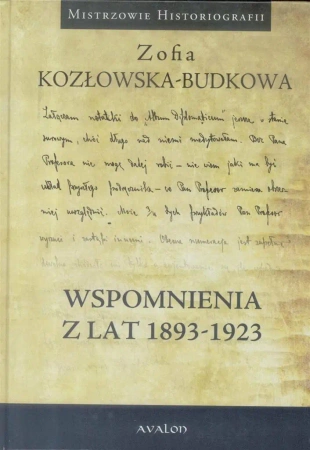 MISTRZOWIE HISTORIOGRAFII
Zofia
KOZŁOWSKA-BUDKOWA
Załączam notatki do „Album diplomaticum" jeszcze w stanie
surowym, choć długo nad niemi medytowałam. Bez Pana
Profesora nie mogę dalej robić – nie wiem jaki ma być
układ przyszłego podręcznika – co Pan Profesor zamierza obszer
niej uwzględnić. Może z tych przykładów Pan Profesor
wyrzuci i zastąpi innemi. Obecna numeracja jest
WSPOMNIENIA
Z LAT 1893-1923
AVALON